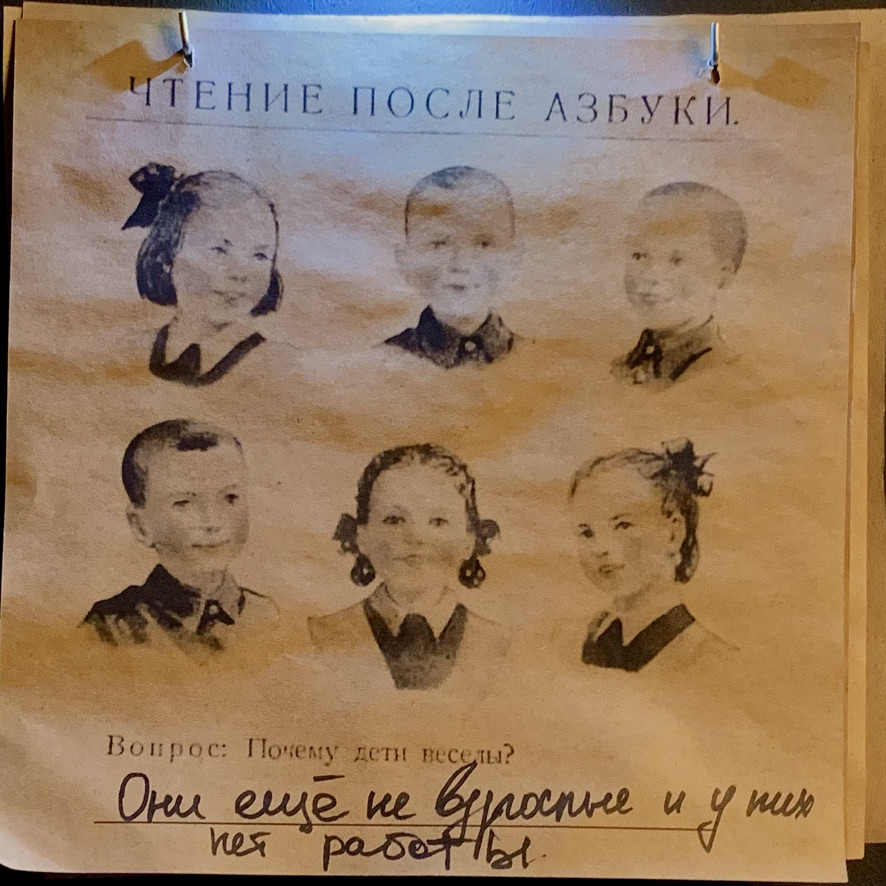 ЧТЕНИЕ ПОСЛЕ АЗБУКИ.
Вопрос: Почему дети веселы?
Они ещё не взрослые и у них
нет работы.